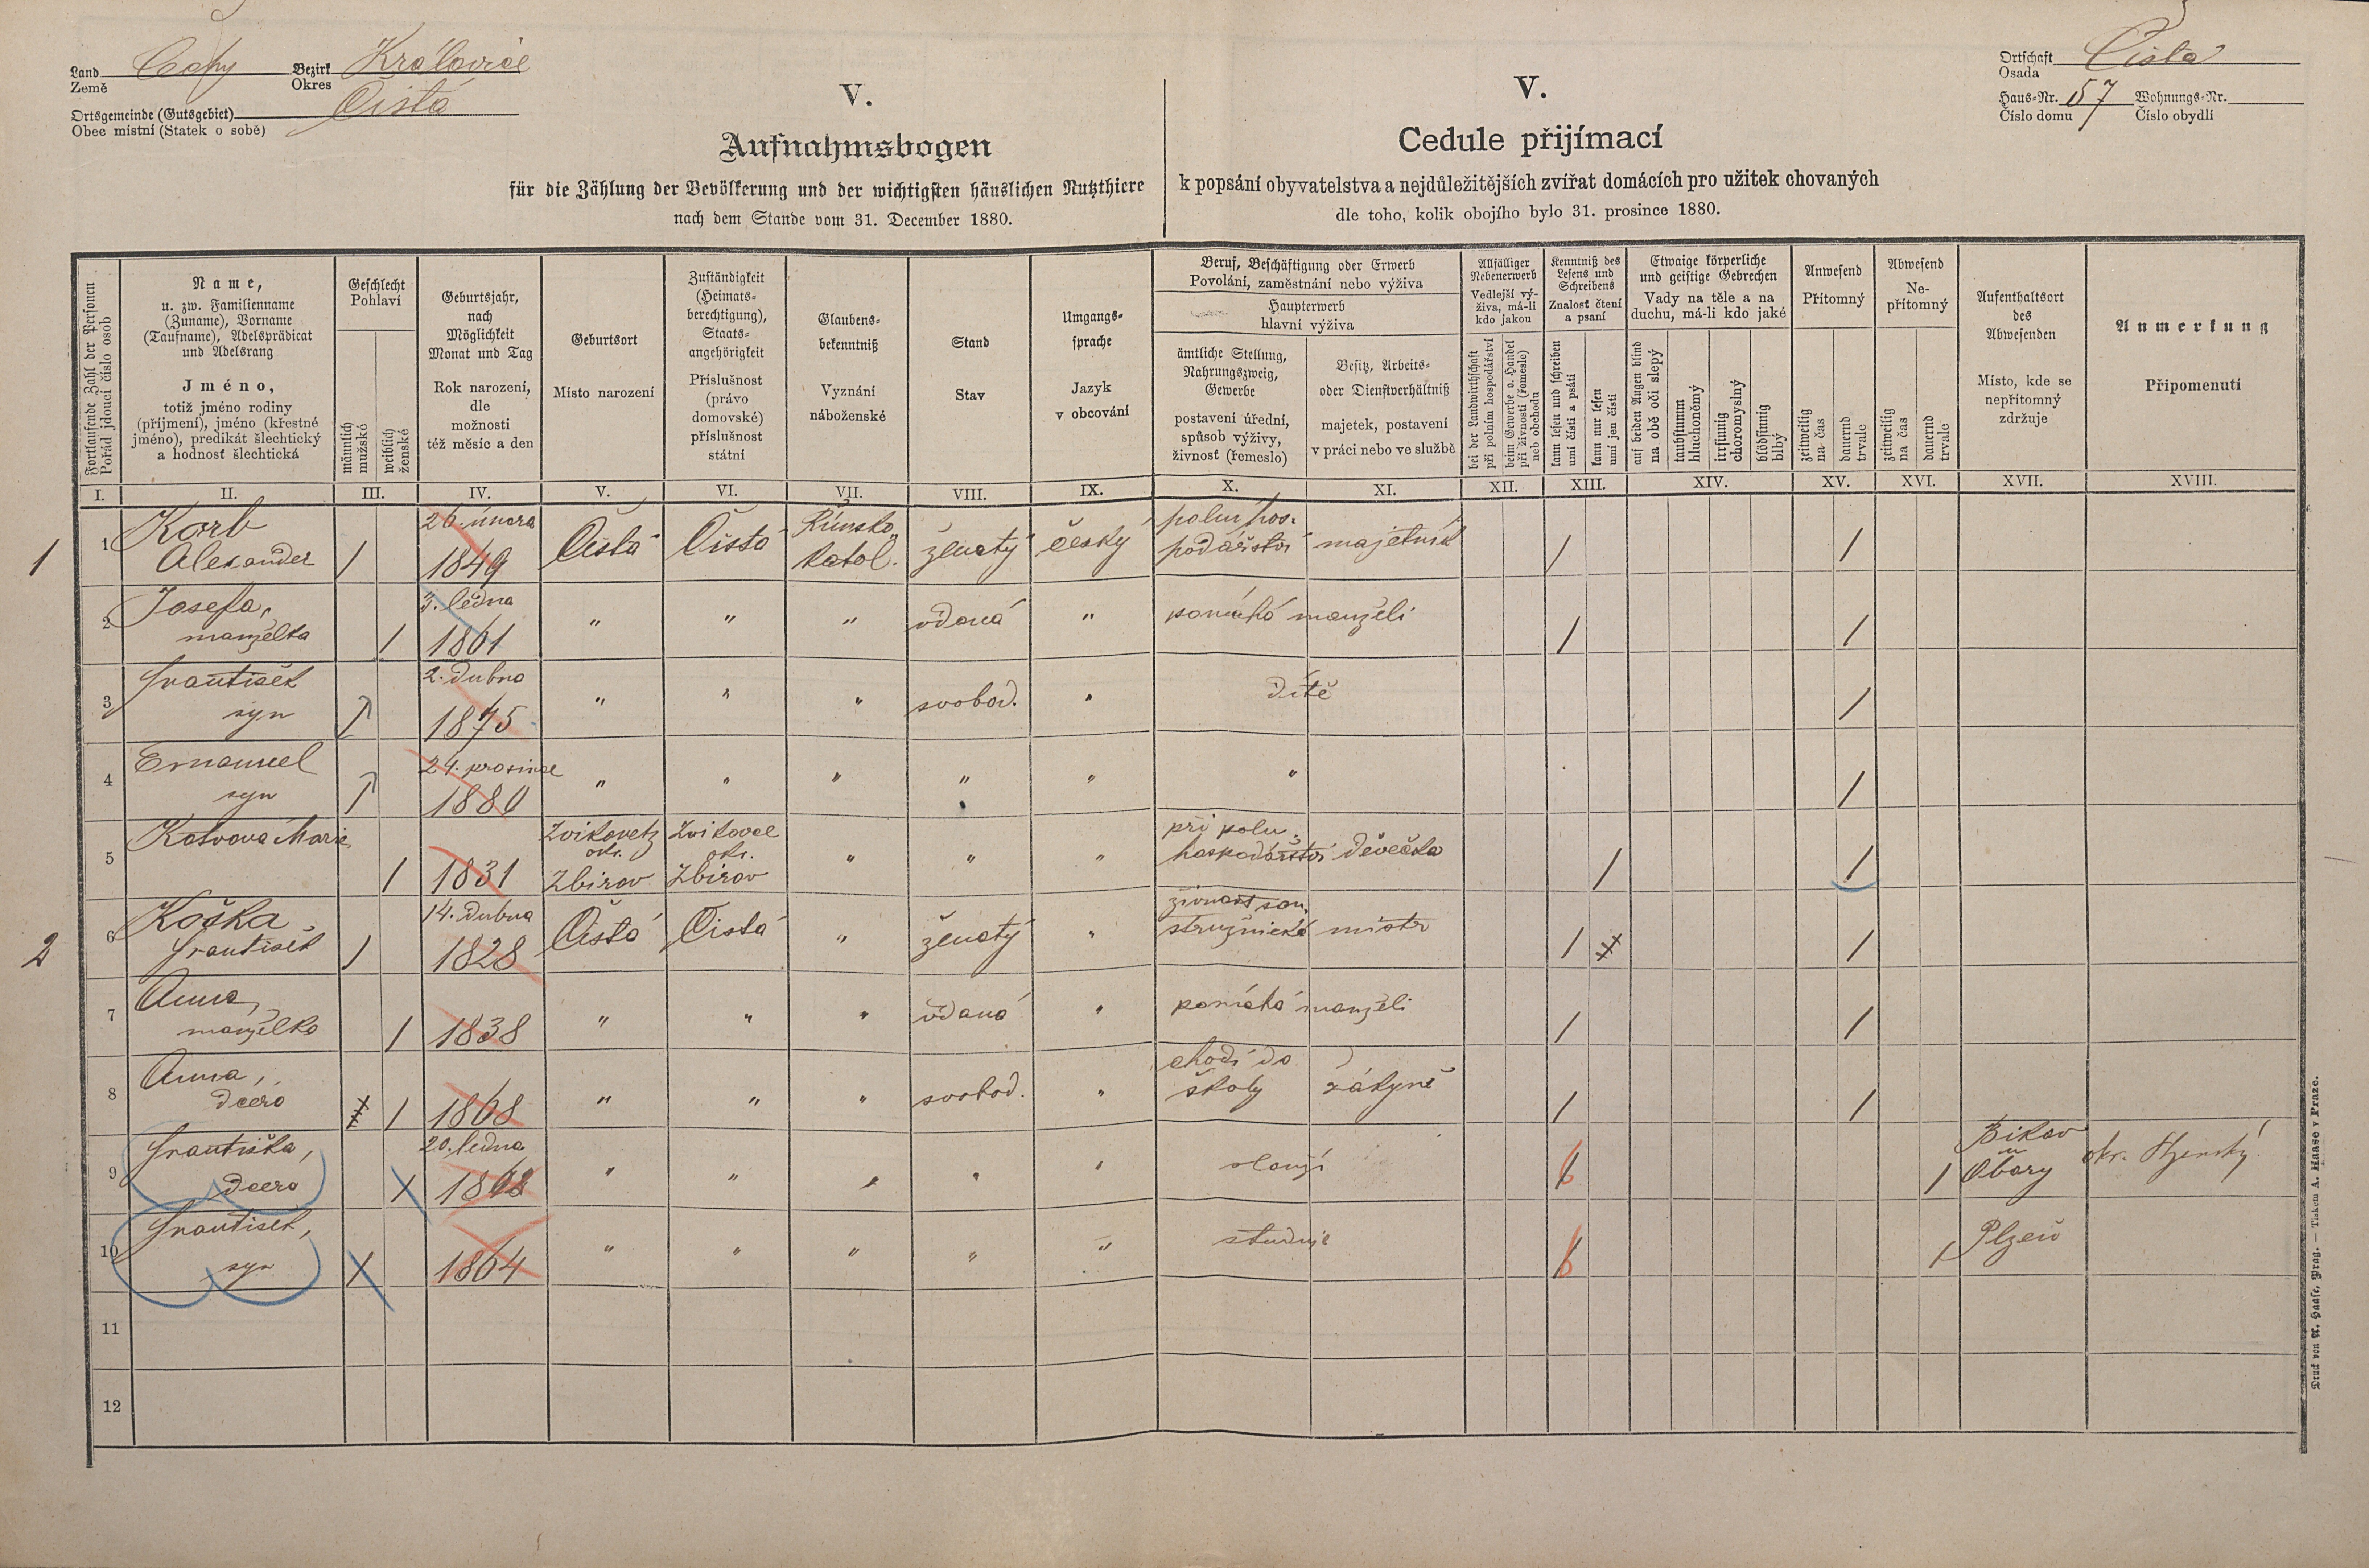 Land Čechy Bezirk Královice
Země Okres
Ortsgemeinde (Gutsgebiet) Čistá
Obec místní (Statek o sobě)
Ortschaft Čistá
Osada
Haus-Nr. 57 Wohnungs-Nr.
Číslo domu Číslo obydlí
V.
Aufnahmsbogen
für die Zählung der Bevölkerung und der wichtigsten häuslichen Nutzthiere
nach dem Stande vom 31. December 1880.
V.
Cedule přijímací
k popsání obyvatelstva a nejdůležitějších zvířat domácích pro užitek chovaných
dle toho, kolik obojího bylo 31. prosince 1880.
Fortlaufende Zahl der Personen
Pořád jdoucí číslo osob
Name,
u. zw. Familienname
(Zuname), Vorname
(Taufname), Adelsprädicat
und Adelsrang
Jméno,
totiž jméno rodiny
(příjmení), jméno (křestné
jméno), predikát šlechtický
a hodnosť šlechtická
Geschlecht
Pohlaví
männlich
mužské
weiblich
ženské
Geburtsjahr,
nach
Möglichkeit
Monat und Tag
Rok narození,
dle
možnosti
též měsíc a den
Geburtsort
Místo narození
Zuständigkeit
(Heimats-
berechtigung),
Staats-
angehörigkeit
Příslušnost
(právo
domovské)
příslušnost
státní
Glaubens-
bekenntniß
Vyznání
náboženské
Stand
Stav
Umgangs-
sprache
Jazyk
v obcování
Beruf, Beschäftigung oder Erwerb
Povolání, zaměstnání nebo výživa
Haupterwerb
hlavní výživa
ämtliche Stellung,
Nahrungszweig,
Gewerbe
postavení úřední,
spůsob výživy,
živnosť (řemeslo)
Besitz, Arbeits-
oder Dienstverhältniß
majetek, postavení
v práci nebo ve službě
Allfälliger
Nebenerwerb
Vedlejší vý-
živa, má-li
kdo jakou
bei der Landwirthschaft
při polním hospodářství
beim Gewerbe o. Handel
při živnosti (řemesle)
neb obchodu
Kenntniß des
Lesens und
Schreibens
Znalosť čtení
a psaní
kann lesen und schreiben
umí čísti a psáti
kann nur lesen
umí jen čísti
Etwaige körperliche
und geistige Gebrechen
Vady na těle a na
duchu, má-li kdo jaké
auf beiden Augen blind
na obě oči slepý
taubstumm
hluchoněmý
irrsinnig
choromyslný
blödsinnig
blbý
Anwesend
Přítomný
zeitweilig
na čas
dauernd
trvale
Abwesend
Ne-
přítomný
zeitweilig
na čas
dauernd
trvale
Aufenthaltsort
des
Abwesenden
Místo, kde se
nepřítomný
zdržuje
Anmerkung
Připomenutí
I. II. III. IV. V. VI. VII. VIII. IX. X. XI. XII. XIII. XIV. XV. XVI. XVII. XVIII.
1 1 Korb 26. února Římsko polní hos.
Alexander / 1849 Čistá Čistá katol. ženatý český podářství majetník / /
2 Josefa, 3. ledna
manželka / 1861 " " " vdaná " pomáhá manželi / /
3 František 2. dubna
syn / 1875 " " " svobod. " dítě /
4 Emanuel 24. prosince
syn / 1880 " " " " " " /
5 Marie Zvíkovetz Zvíkovec při poln.
okr. okr. hospodářství děvečka
/ 1831 Zbirov Zbirov " " " / /
2 6 Koška 14. dubna živnost
František / 1828 Čistá Čistá " ženatý " mistr / /
7 Anna,
manželka / 1838 " " " vdaná " pomáhá manželi / /
8 Anna, chodí do
dcera / 1868 " " " svobod. " školy žákyně / /
9 Františka, 20. ledna
dcera / " " " " " slouží / / Obory okr.
10 František,
syn / 1864 " " " " " studuje / / Plzeň
11
12
Druck von A. Haase, Prag. — Tiskem A. Haase v Praze.